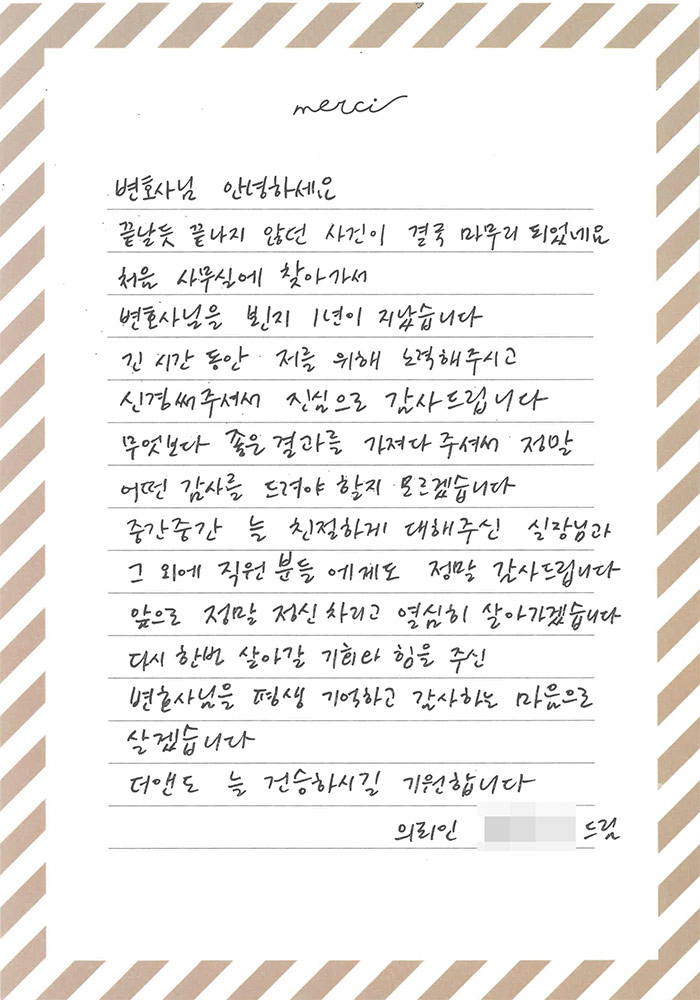 merci
변호사님 안녕하세요
끝날듯 끝나지 않던 사건이 결국 마무리 되었네요
처음 사무실에 찾아가서
변호사님을 뵌지 1년이 지났습니다
긴 시간 동안 저를 위해 노력해주시고
신경써주셔서 진심으로 감사드립니다
무엇보다 좋은결과를 가져다 주셔서 정말
어떤 감사를 드려야 할지 모르겠습니다
중간중간 늘 친절하게 대해주신 실장님과
그 외에 직원분들에게도 정말 감사드립니다
앞으로 정말 정신차리고 열심히 살아가겠습니다
다시한번 살아갈 기회와 힘을 주신
변호사님을 평생 기억하고 감사하는 마음으로
살겠습니다
더앤도 늘 건승하시길 기원합니다
의뢰인 드림